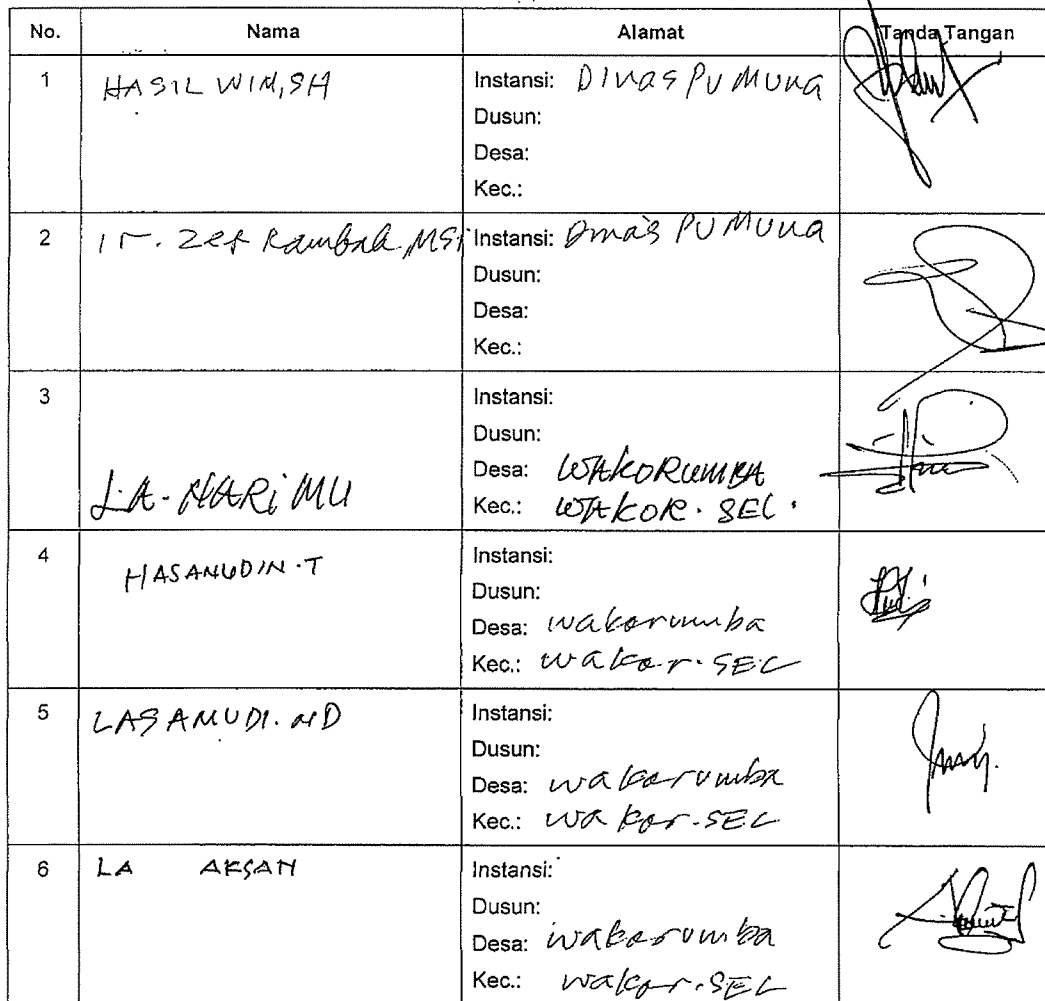 No. Nama Alamat Tanda Tangan
1 HASIL WIN, SH Instansi: Dinas PU Muna
Dusun:
Desa:
Kec.:
2 Ir. Zet Rambak, MSi Instansi: Dinas PU Muna
Dusun:
Desa:
Kec.:
3 Instansi:
Dusun:
LA. HARIMU Desa: WAKORUMBA
Kec.: WAKOR. SEL.
4 HASANUDIN.T Instansi:
Dusun:
Desa: wakorumba
Kec.: wakor. SEL
5 LASAMUDI. Instansi:
Dusun:
Desa: wakorumba
Kec.: wakor. SEL
6 LA AKSAN Instansi:
Dusun:
Desa: wakorumba
Kec.: wakor. SEL